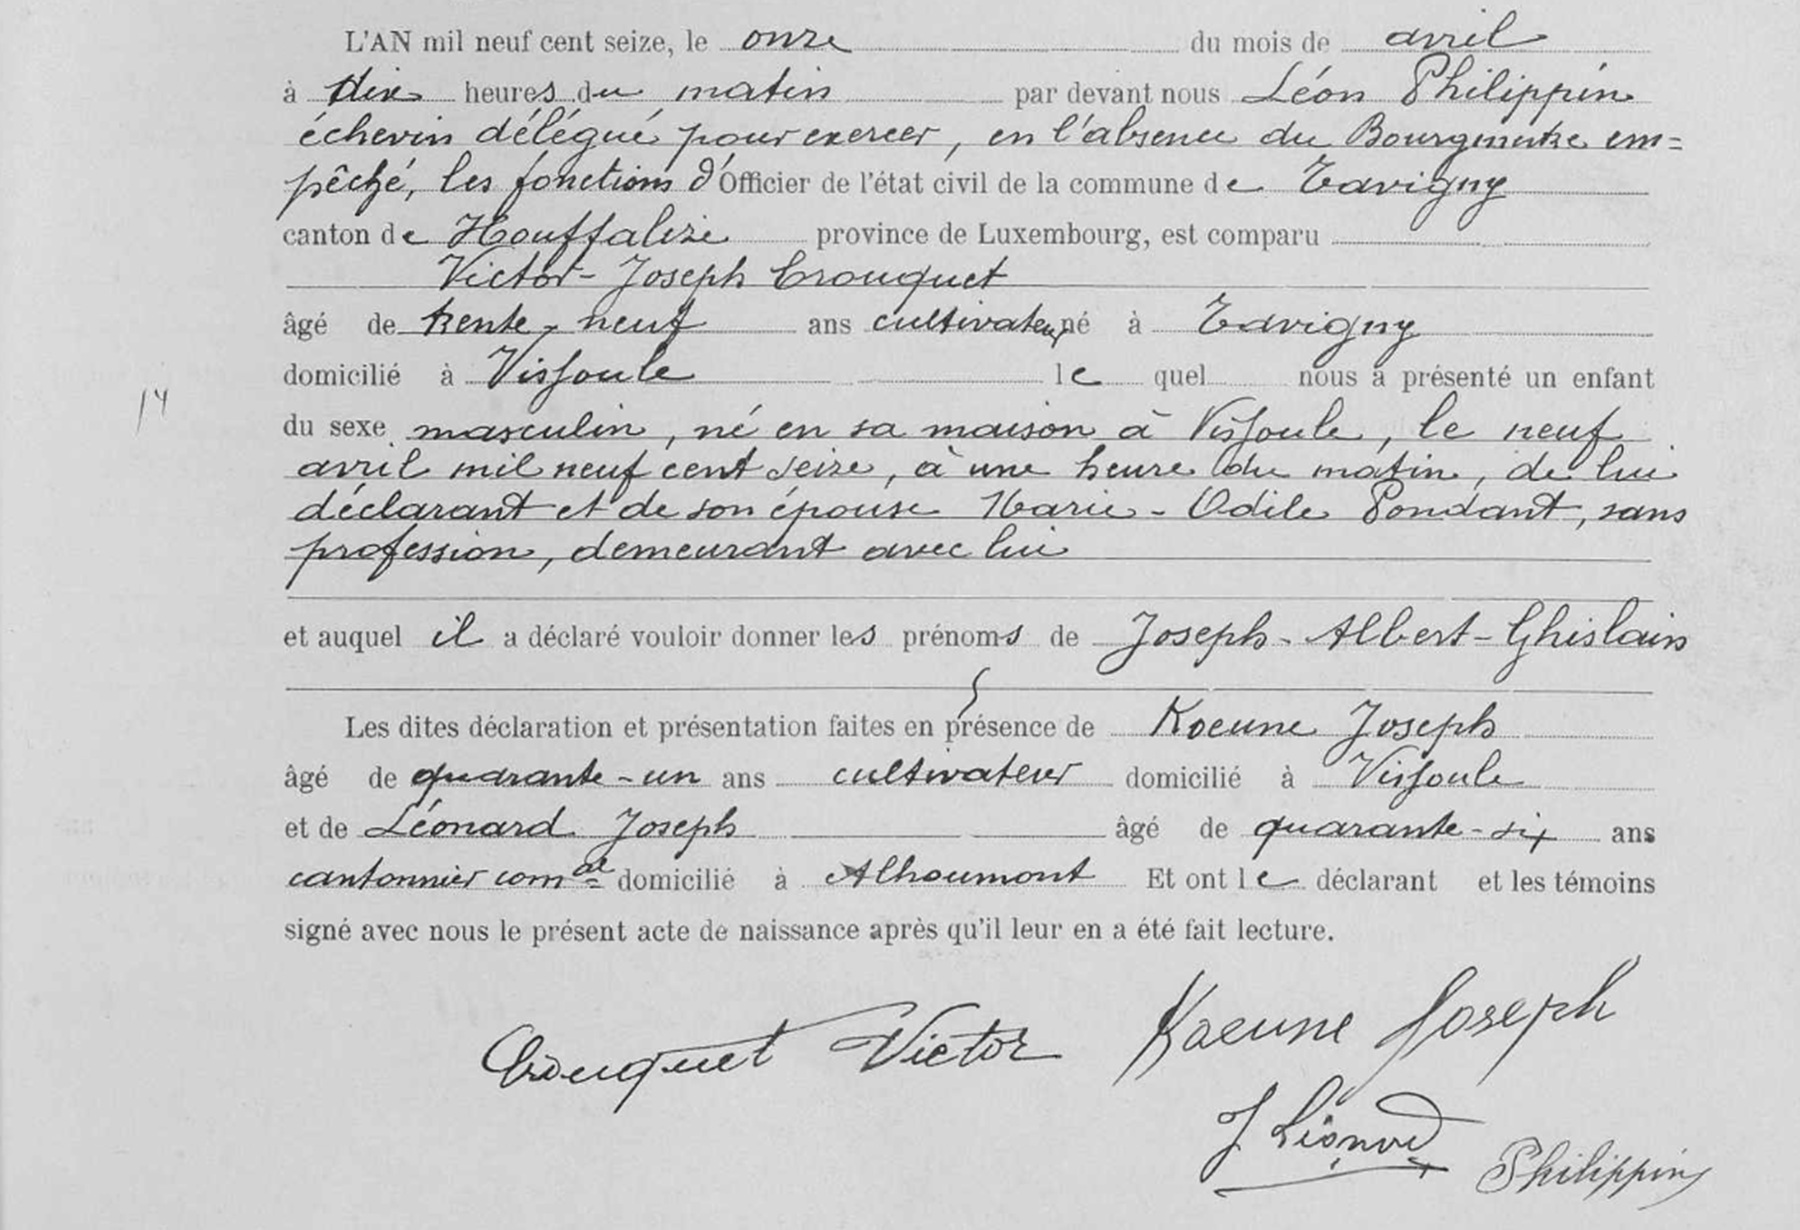 L'AN mil neuf cent seize, le onze du mois de avril
à dix heures du matin par devant nous Léon Philippin
échevin délégué pour exercer, en l'absence du Bourgmestre em=
pêché, les fonctions d'Officier de l'état civil de la commune de Tavigny
canton de Houffalize province de Luxembourg, est comparu
Victor-Joseph Crouquet
âgé de trente-neuf ans cultivateur né à Tavigny
domicilié à Vissoule le quel nous a présenté un enfant
14
du sexe masculin, né en sa maison à Vissoule, le neuf
avril mil neuf cent seize, à une heure du matin, de lui
déclarant et de son épouse Marie-Odile Pondant, sans
profession, demeurant avec lui
et auquel il a déclaré vouloir donner les prénoms de Joseph-Albert-Ghislain
Les dites déclaration et présentation faites en présence de Koeune Joseph
âgé de quarante-un ans cultivateur domicilié à Vissoule
et de Léonard Joseph âgé de quarante-six ans
cantonnier com.al domicilié à Alhoumont Et ont le déclarant et les témoins
signé avec nous le présent acte de naissance après qu'il leur en a été fait lecture.
Crouquet Victor Koeune Joseph
J Léonard Philippin